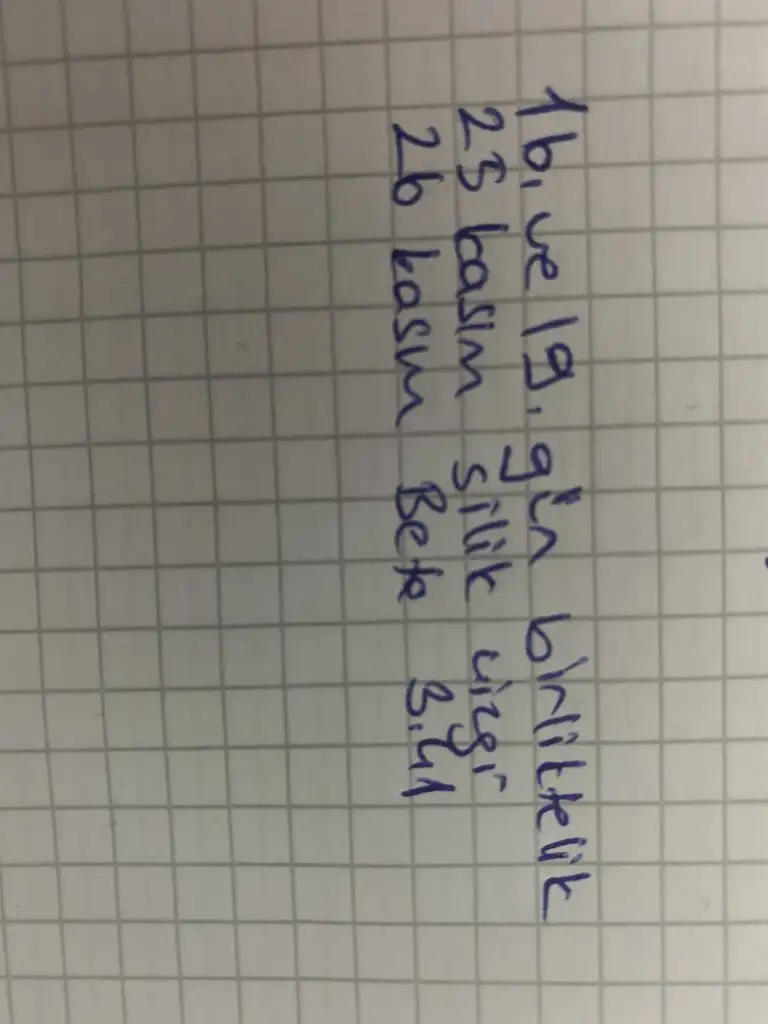 16. ve 19. gün birliktelik
23 kasım silik çizgi
26 kasım Beta 3.41